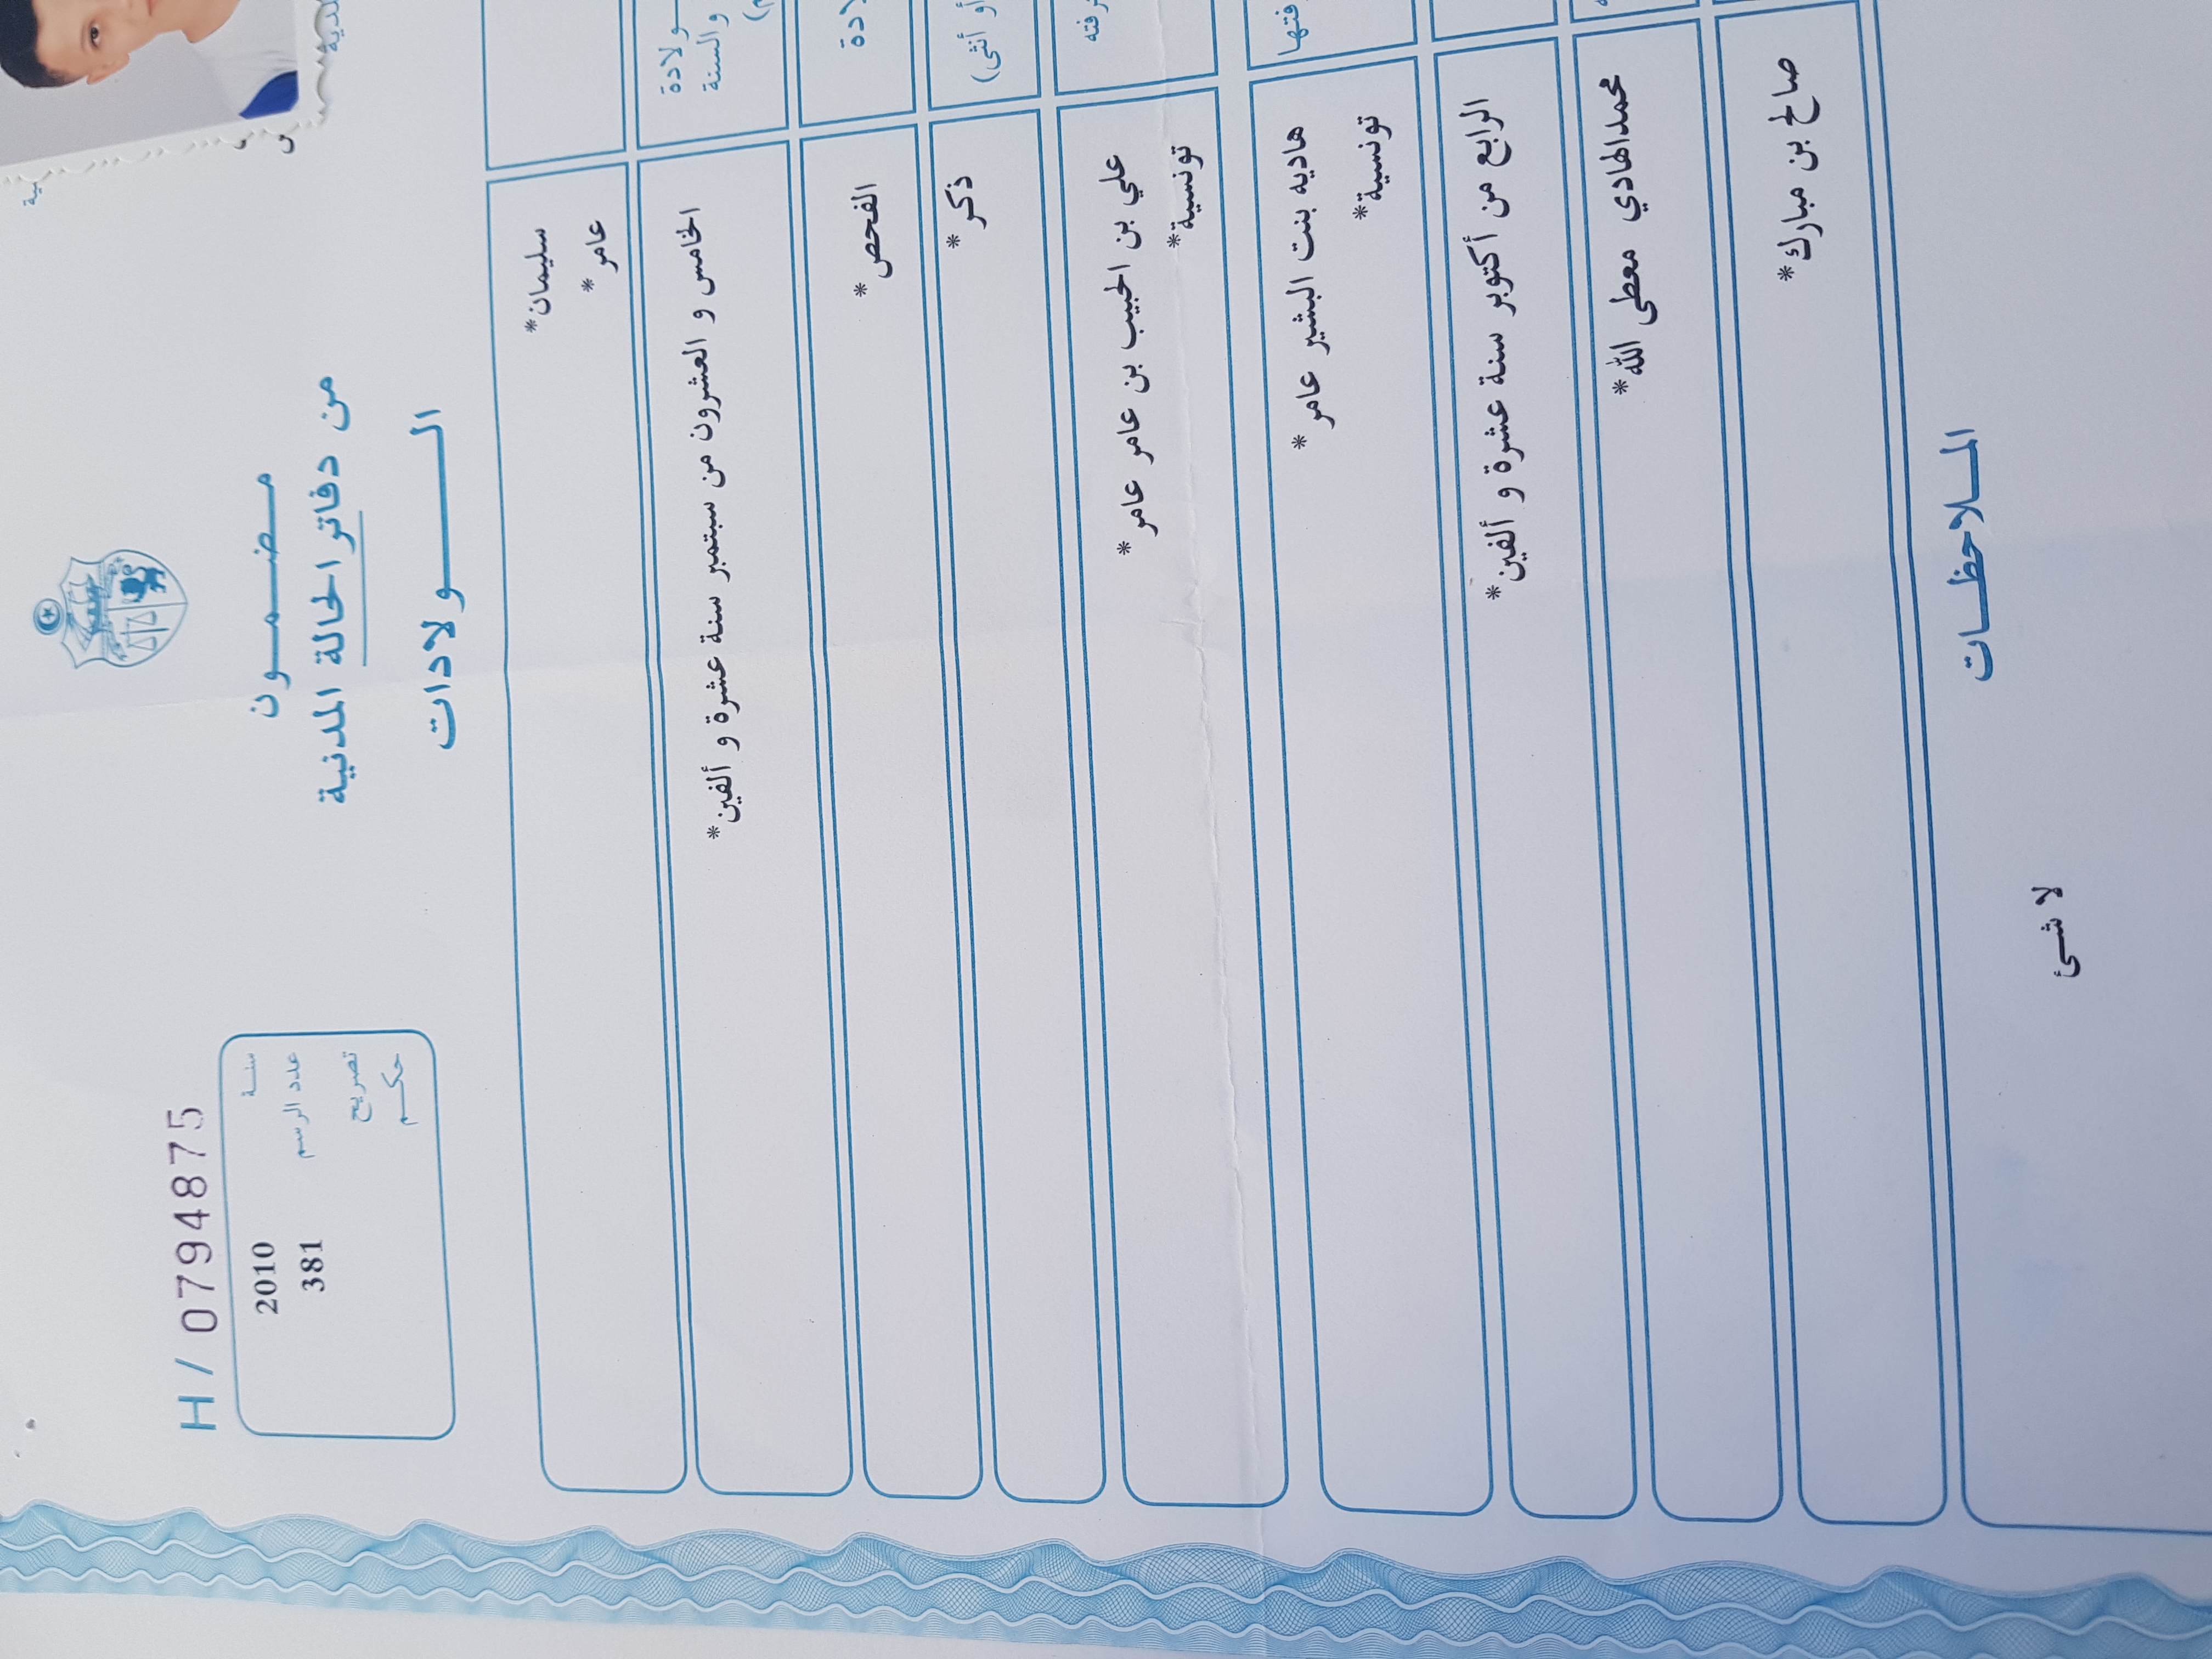 H / 0794875
سنة 2010
عدد الرسم 381
تصريح
حكم
مضمون
من دفاتر الحالة المدنية
الولادات
سليمان*
عامر*
ولادة
والسنة
الخامس و العشرون من سبتمبر سنة عشرة و ألفين*
الفحص*
أو أنثى)
ذكر*
علي بن الحبيب بن عامر عامر*
تونسية*
هاديه بنت البشير عامر*
تونسية*
الرابع من أكتوبر سنة عشرة و ألفين*
محمدالهادي معطى الله*
صالح بن مبارك*
الملاحظات
لا شئ